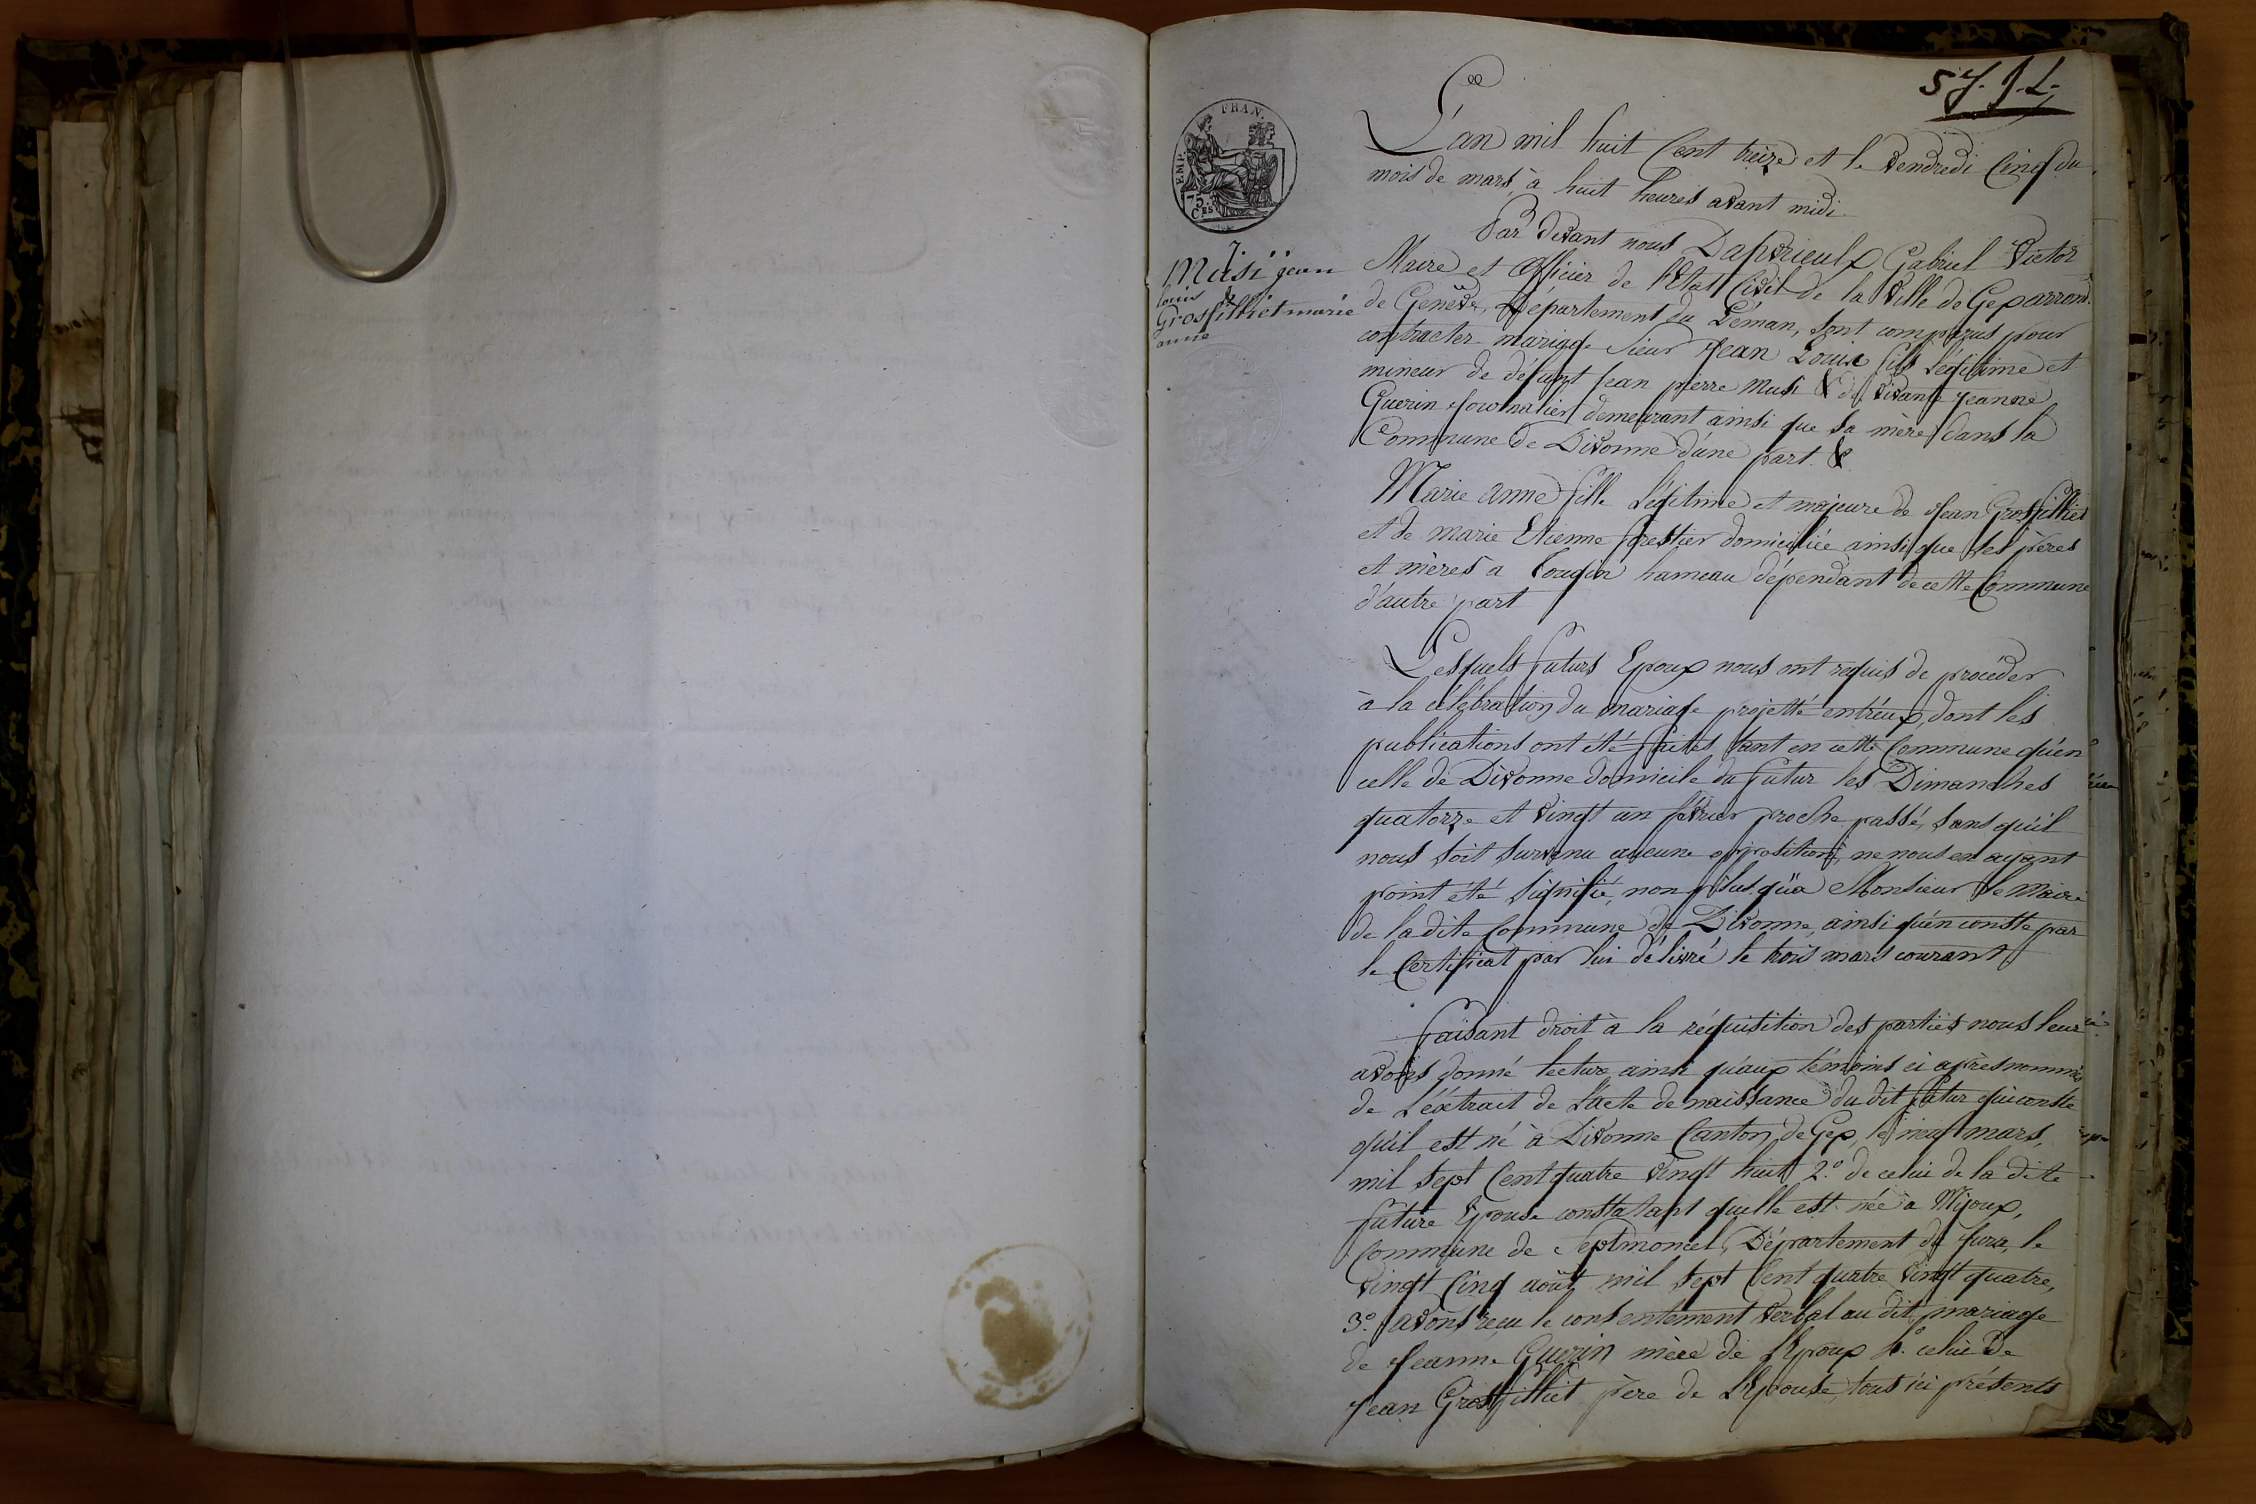 5 J. J. L.
FRAN.
EMP.
75.
CES
7
Musi jean
louis &
Grosfilliet marie
anne
L'an mil huit Cent treize et le Vendredi Cinq du
mois de mars, à huit heures avant midi
Par devant nous Dapvrieulx Gabriel Victor
Maire et officier de l'Etat Civil de la Ville de Gex arrond.
de Genève, Département du Léman, sont comparus pour
contracter mariage Sieur Jean Louis fils légitime et
mineur de défunt Jean pierre Musi & de vivante Jeanne
Guerin journalier demeurant ainsi que sa mère dans la
Commune de Divonne d'une part. &
Marie anne fille Légitime et majeure de Jean Grosfilliet
et de marie Etienne forestier domiciliée ainsi que ses pères
et mères à Tougin hameau dépendant de cette Commune
d'autre part
Lesquels futurs Epoux nous ont requis de procéder
à la célébration du mariage projetté entr'eux, dont les
publications ont été faites tant en cette Commune qu'en
celle de Divonne domicile du futur les Dimanches
quatorze et vingt un février proche passé, sans qu'il
nous soit survenu aucune opposition, ne nous en ayant
point été signifié, non plus qu'a Monsieur le Maire
de la dite Commune de Divonne, ainsi qu'en conste par
le Certificat par lui délivré le trois mars courant
faisant droit à la réquisition des parties nous leur
avons donné lecture ainsi qu'aux témoins ci après nommés
de L'éxtrait de l'acte de naissance du dit futur qui conste
qu'il est né à Divonne Canton de Gex, le neuf mars,
mil sept Cent quatre vingt huit 2.° de celui de la dite
future Epouse constatant quelle est née à Mijoux,
Commune de Septmoncel, Département du Jura, le
vingt Cinq août mil sept Cent quatre vingt quatre,
3.° avons reçu le consentement verbal au dit mariage
de Jeanne Guerin mère de l'Epoux 4.° celui de
Jean Grosfilliet père de L'Epouse, tous ici présents